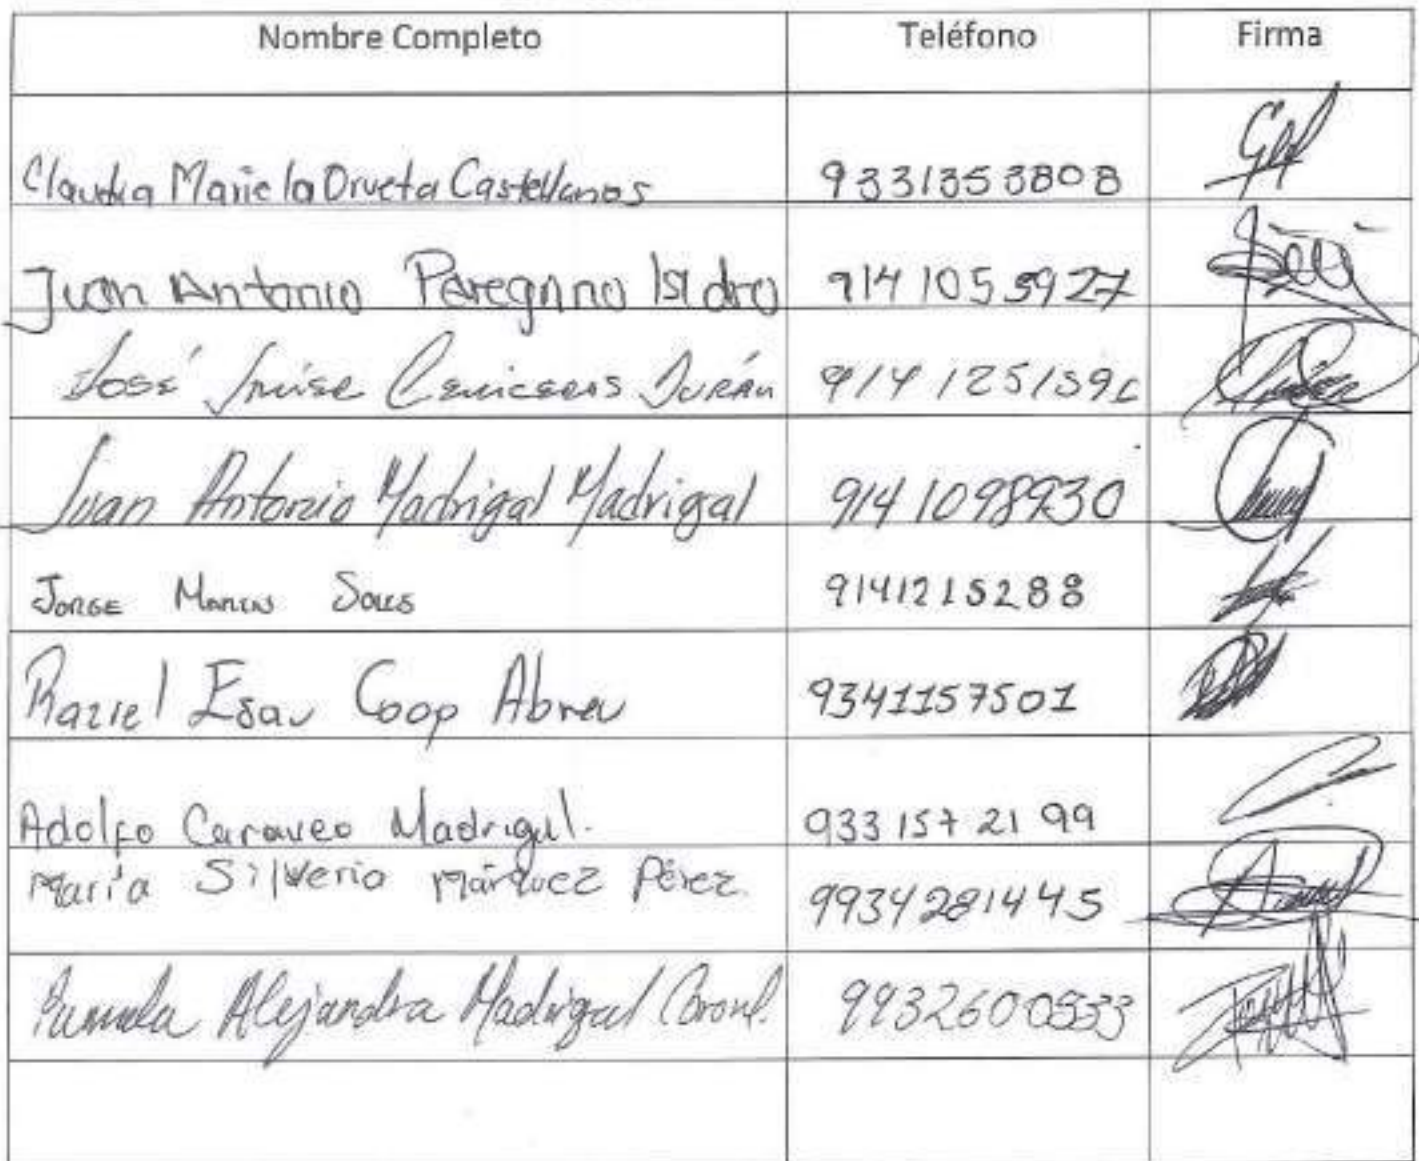 Nombre Completo Teléfono Firma
Claudia Mariela Orueta Castellanos 9331353808
Juan Antonio Peregrino Isidro 914 105 5927
José Ceniceros Durán 914 125159
Juan Antonio Madrigal Madrigal 914 1098930
Jorge Solis 9141215288
Raziel Esau Coop Abreu 9341157501
Adolfo Caraveo Madrigal. 933 157 21 99
María Silveria Márquez Pérez. 9934281445
Alejandra Madrigal 9932600533